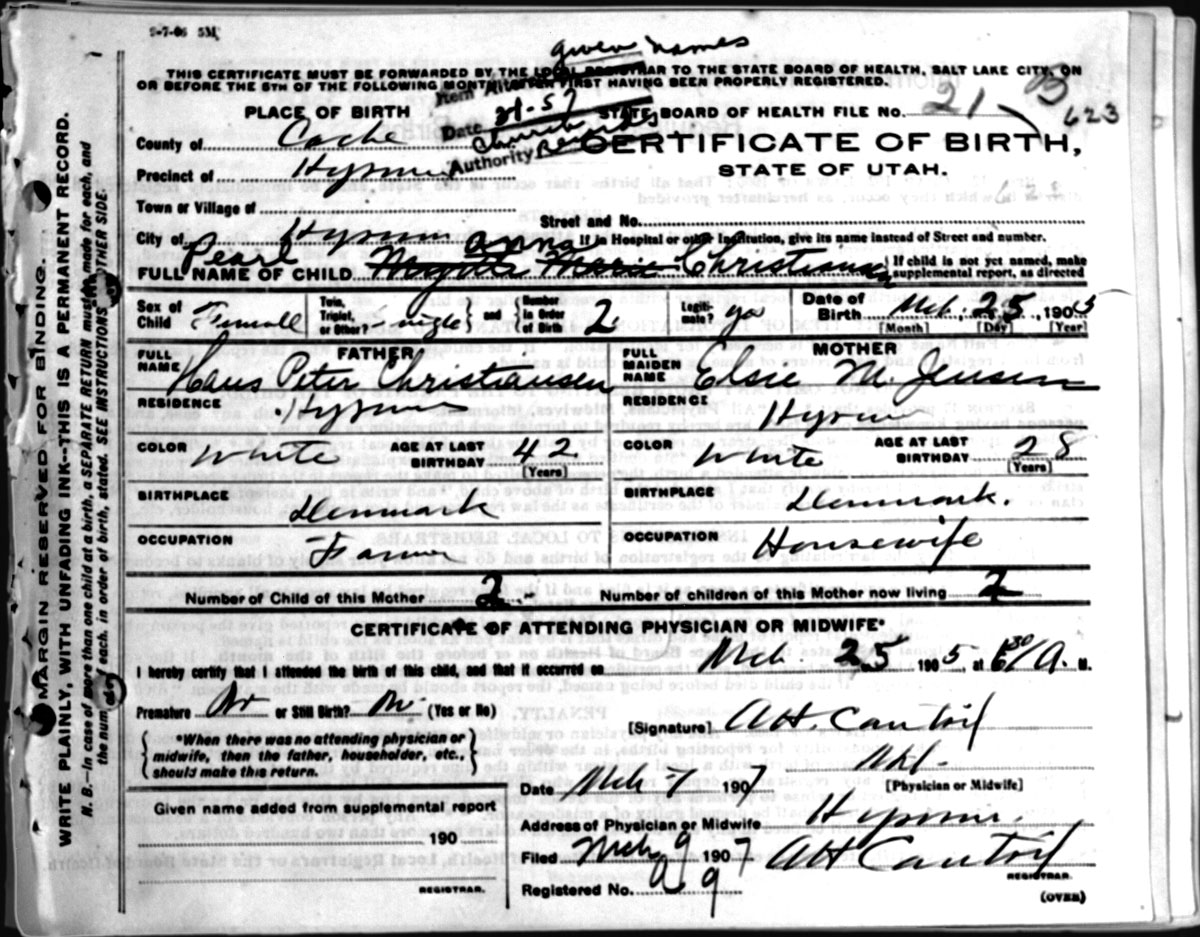 2-7-06 5M
given names
THIS CERTIFICATE MUST BE FORWARDED BY THE LOCAL REGISTRAR TO THE STATE BOARD OF HEALTH, SALT LAKE CITY, ON
OR BEFORE THE 5TH OF THE FOLLOWING MONTH AFTER FIRST HAVING BEEN PROPERLY REGISTERED.
Item Altered
PLACE OF BIRTH
Date
STATE BOARD OF HEALTH FILE NO. 21 B 623
County of Cache
Church Records
CERTIFICATE OF BIRTH,
Authority
Precinct of Hyrum
STATE OF UTAH.
Town or Village of
623
Street and No.
City of Hyrum
If in Hospital or other Institution, give its name instead of Street and number.
Pearl Anna
FULL NAME OF CHILD Marie Christiansen
If child is not yet named, make supplemental report, as directed
Sex of Child Female
Twin, Triplet, or Other? single and Number in Order of Birth 2
Legitimate? yes
Date of Birth Mch. 25, 1905
[Month] [Day] [Year]
FATHER
FULL NAME Hans Peter Christiansen
MOTHER
FULL MAIDEN NAME Elsie M. Jensen
RESIDENCE Hyrum
RESIDENCE Hyrum
COLOR White AGE AT LAST BIRTHDAY 42 [Years]
COLOR White AGE AT LAST BIRTHDAY 28 [Years]
BIRTHPLACE Denmark
BIRTHPLACE Denmark.
OCCUPATION Farmer
OCCUPATION Housewife
Number of Child of this Mother 2. Number of children of this Mother now living 2
CERTIFICATE OF ATTENDING PHYSICIAN OR MIDWIFE*
I hereby certify that I attended the birth of this child, and that it occurred on Mch. 25 1905, at 6 30/ A. M.
Premature No or Still Birth? No (Yes or No)
[Signature] AH.
*When there was no attending physician or midwife, then the father, householder, etc., should make this return.
MD.
[Physician or Midwife]
Date Mch 1907
Address of Physician or Midwife Hyrum.
Given name added from supplemental report
190
Filed Mch 9 1907 AH
REGISTRAR.
REGISTRAR.
Registered No. 9
(OVER)
MARGIN RESERVED FOR BINDING.
WRITE PLAINLY, WITH UNFADING INK—THIS IS A PERMANENT RECORD.
N. B.—In case of more than one child at a birth, a SEPARATE RETURN must be made for each, and
the number of each, in order of birth, stated. SEE INSTRUCTIONS OTHER SIDE.